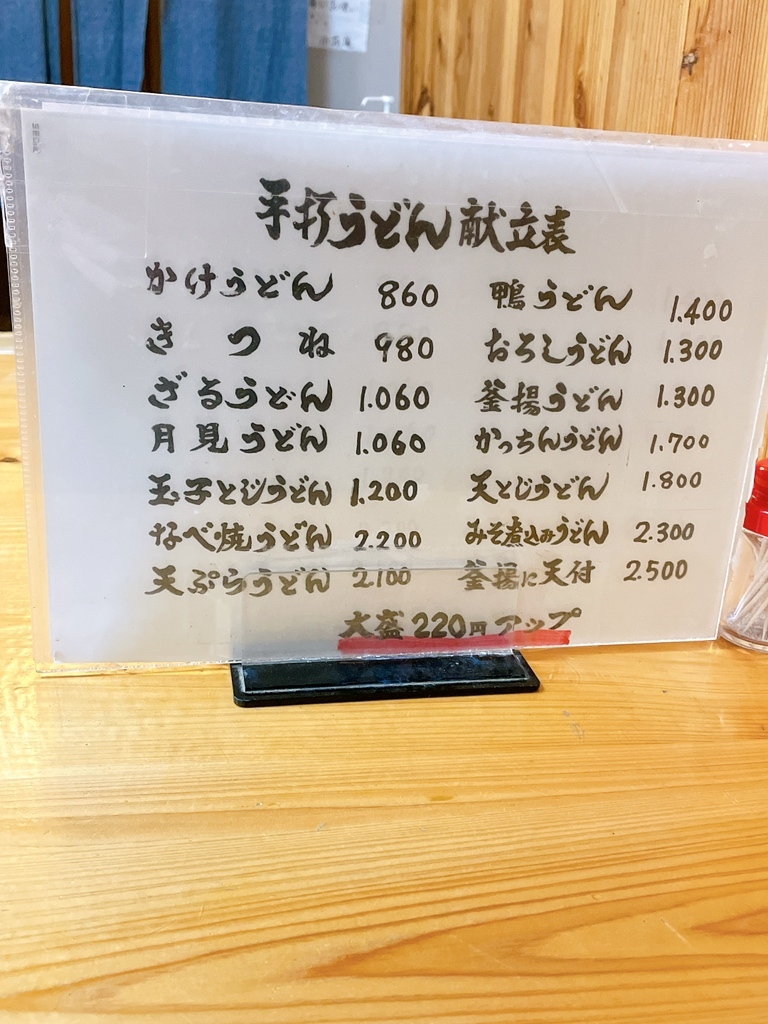 手打うどん献立表
かけうどん 860
きつね 980
ざるうどん 1.060
月見うどん 1.060
玉子とじうどん 1.200
なべ焼うどん 2.200
天ぷらうどん 2.100
鴨うどん 1.400
おろしうどん 1.300
釜揚うどん 1.300
かっちんうどん 1.700
天とじうどん 1.800
みそ煮込みうどん 2.300
釜揚に天付 2.500
大盛220円アップ